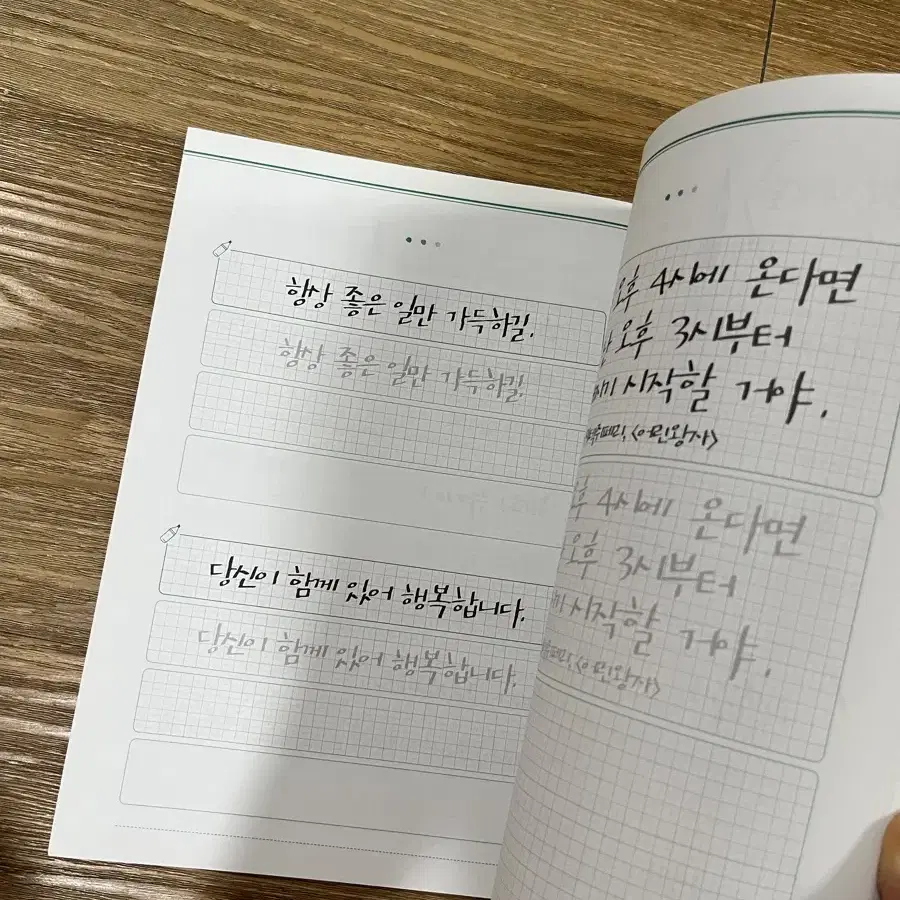 항상 좋은 일만 가득하길.
항상 좋은 일만 가득하길.
당신이 함께 있어 행복합니다.
당신이 함께 있어 행복합니다.
오후 4시에 온다면
오후 3시부터
시작할 거야.
<어린왕자>
4시에 온다면
오후 3시부터
시작할 거야.
<어린왕자>